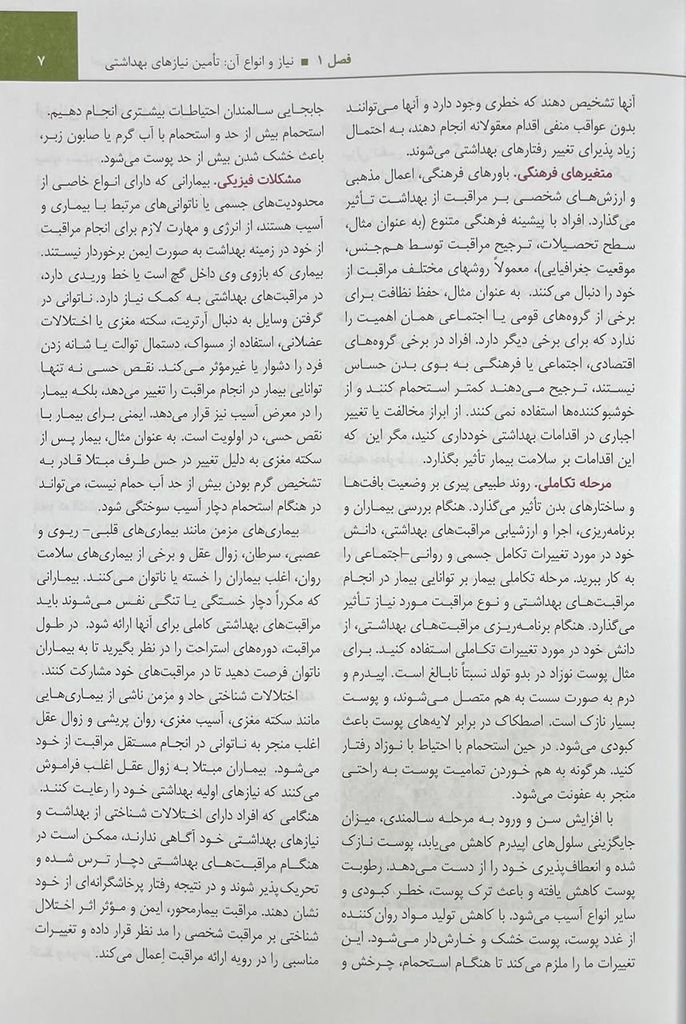 فصل ۱ ■ نیاز و انواع آن: تأمین نیازهای بهداشتی
۷
آنها تشخیص دهند که خطری وجود دارد و آنها می‌توانند
بدون عواقب منفی اقدام معقولانه انجام دهند، به احتمال
زیاد پذیرای تغییر رفتارهای بهداشتی می‌شوند.
متغیرهای فرهنگی. باورهای فرهنگی، اعمال مذهبی
و ارزش‌های شخصی بر مراقبت از بهداشت تأثیر
می‌گذارد. افراد با پیشینه فرهنگی متنوع (به عنوان مثال،
سطح تحصیلات، ترجیح مراقبت توسط هم‌جنس،
موقعیت جغرافیایی)، معمولاً روشهای مختلف مراقبت از
خود را دنبال می‌کنند. به عنوان مثال، حفظ نظافت برای
برخی از گروه‌های قومی یا اجتماعی همان اهمیت را
ندارد که برای برخی دیگر دارد. افراد در برخی گروه‌های
اقتصادی، اجتماعی یا فرهنگی به بوی بدن حساس
نیستند، ترجیح می‌دهند کمتر استحمام کنند و از
خوشبوکننده‌ها استفاده نمی‌کنند. از ابراز مخالفت یا تغییر
اجباری در اقدامات بهداشتی خودداری کنید، مگر این که
این اقدامات بر سلامت بیمار تأثیر بگذارد.
مرحله تکاملی. روند طبیعی پیری بر وضعیت بافت‌ها
و ساختارهای بدن تأثیر می‌گذارد. هنگام بررسی بیماران و
برنامه‌ریزی، اجرا و ارزشیابی مراقبت‌های بهداشتی، دانش
خود در مورد تغییرات تکامل جسمی و روانی-اجتماعی را
به کار ببرید. مرحله تکاملی بیمار بر توانایی بیمار در انجام
مراقبت‌های بهداشتی و نوع مراقبت مورد نیاز تأثیر
می‌گذارد. هنگام برنامه‌ریزی مراقبت‌های بهداشتی، از
دانش خود در مورد تغییرات تکاملی استفاده کنید. برای
مثال پوست نوزاد در بدو تولد نسبتاً نابالغ است. اپیدرم و
درم به صورت سست به هم متصل می‌شوند، و پوست
بسیار نازک است. اصطکاک در برابر لایه‌های پوست باعث
کبودی می‌شود. در حین استحمام با احتیاط با نوزاد رفتار
کنید. هرگونه به هم خوردن تمامیت پوست به راحتی
منجر به عفونت می‌شود.
با افزایش سن و ورود به مرحله سالمندی، میزان
جایگزینی سلول‌های اپیدرم کاهش می‌یابد، پوست نازک
شده و انعطاف‌پذیری خود را از دست می‌دهد. رطوبت
پوست کاهش یافته و باعث ترک پوست، خطر کبودی و
سایر انواع آسیب می‌شود. با کاهش تولید مواد روان‌کننده
از غدد پوست، پوست خشک و خارش‌دار می‌شود. این
تغییرات ما را ملزم می‌کند تا هنگام استحمام، چرخش و
جابجایی سالمندان احتیاطات بیشتری انجام دهیم.
استحمام بیش از حد و استحمام با آب گرم یا صابون زبر،
باعث خشک شدن بیش از حد پوست می‌شود.
مشکلات فیزیکی. بیمارانی که دارای انواع خاصی از
محدودیت‌های جسمی یا ناتوانی‌های مرتبط با بیماری و
آسیب هستند، از انرژی و مهارت لازم برای انجام مراقبت
از خود در زمینه بهداشت به صورت ایمن برخوردار نیستند.
بیماری که بازوی وی داخل گچ است یا خط وریدی دارد،
در مراقبت‌های بهداشتی به کمک نیاز دارد. ناتوانی در
گرفتن وسایل به دنبال آرتریت، سکته مغزی یا اختلالات
عضلانی، استفاده از مسواک، دستمال توالت یا شانه زدن
فرد را دشوار یا غیرمؤثر می‌کند. نقص حسی نه تنها
توانایی بیمار در انجام مراقبت را تغییر می‌دهد، بلکه بیمار
را در معرض آسیب نیز قرار می‌دهد. ایمنی برای بیمار با
نقص حسی، در اولویت است. به عنوان مثال، بیمار پس از
سکته مغزی به دلیل تغییر در حس طرف مبتلا قادر به
تشخیص گرم بودن بیش از حد آب حمام نیست، می‌تواند
در هنگام استحمام دچار آسیب سوختگی شود.
بیماری‌های مزمن مانند بیماری‌های قلبی- ریوی و
عصبی، سرطان، زوال عقل و برخی از بیماری‌های سلامت
روان، اغلب بیماران را خسته یا ناتوان می‌کنند. بیمارانی
که مکرراً دچار خستگی یا تنگی نفس می‌شوند باید
مراقبت‌های بهداشتی کاملی برای آنها ارائه شود. در طول
مراقبت، دوره‌های استراحت را در نظر بگیرید تا به بیماران
ناتوان فرصت دهید تا در مراقبت‌های خود مشارکت کنند.
اختلالات شناختی حاد و مزمن ناشی از بیماری‌هایی
مانند سکته مغزی، آسیب مغزی، روان پریشی و زوال عقل
اغلب منجر به ناتوانی در انجام مستقل مراقبت از خود
می‌شود. بیماران مبتلا به زوال عقل اغلب فراموش
می‌کنند که نیازهای اولیه بهداشتی خود را رعایت کنند.
هنگامی که افراد دارای اختلالات شناختی از بهداشت و
نیازهای بهداشتی خود آگاهی ندارند، ممکن است در
هنگام مراقبت‌های بهداشتی دچار ترس شده و
تحریک‌پذیر شوند و در نتیجه رفتار پرخاشگرانه‌ای از خود
نشان دهند. مراقبت بیمارمحور، ایمن و مؤثر اثر اختلال
شناختی بر مراقبت شخصی را مد نظر قرار داده و تغییرات
مناسبی را در رویه ارائه مراقبت اِعمال می‌کند.